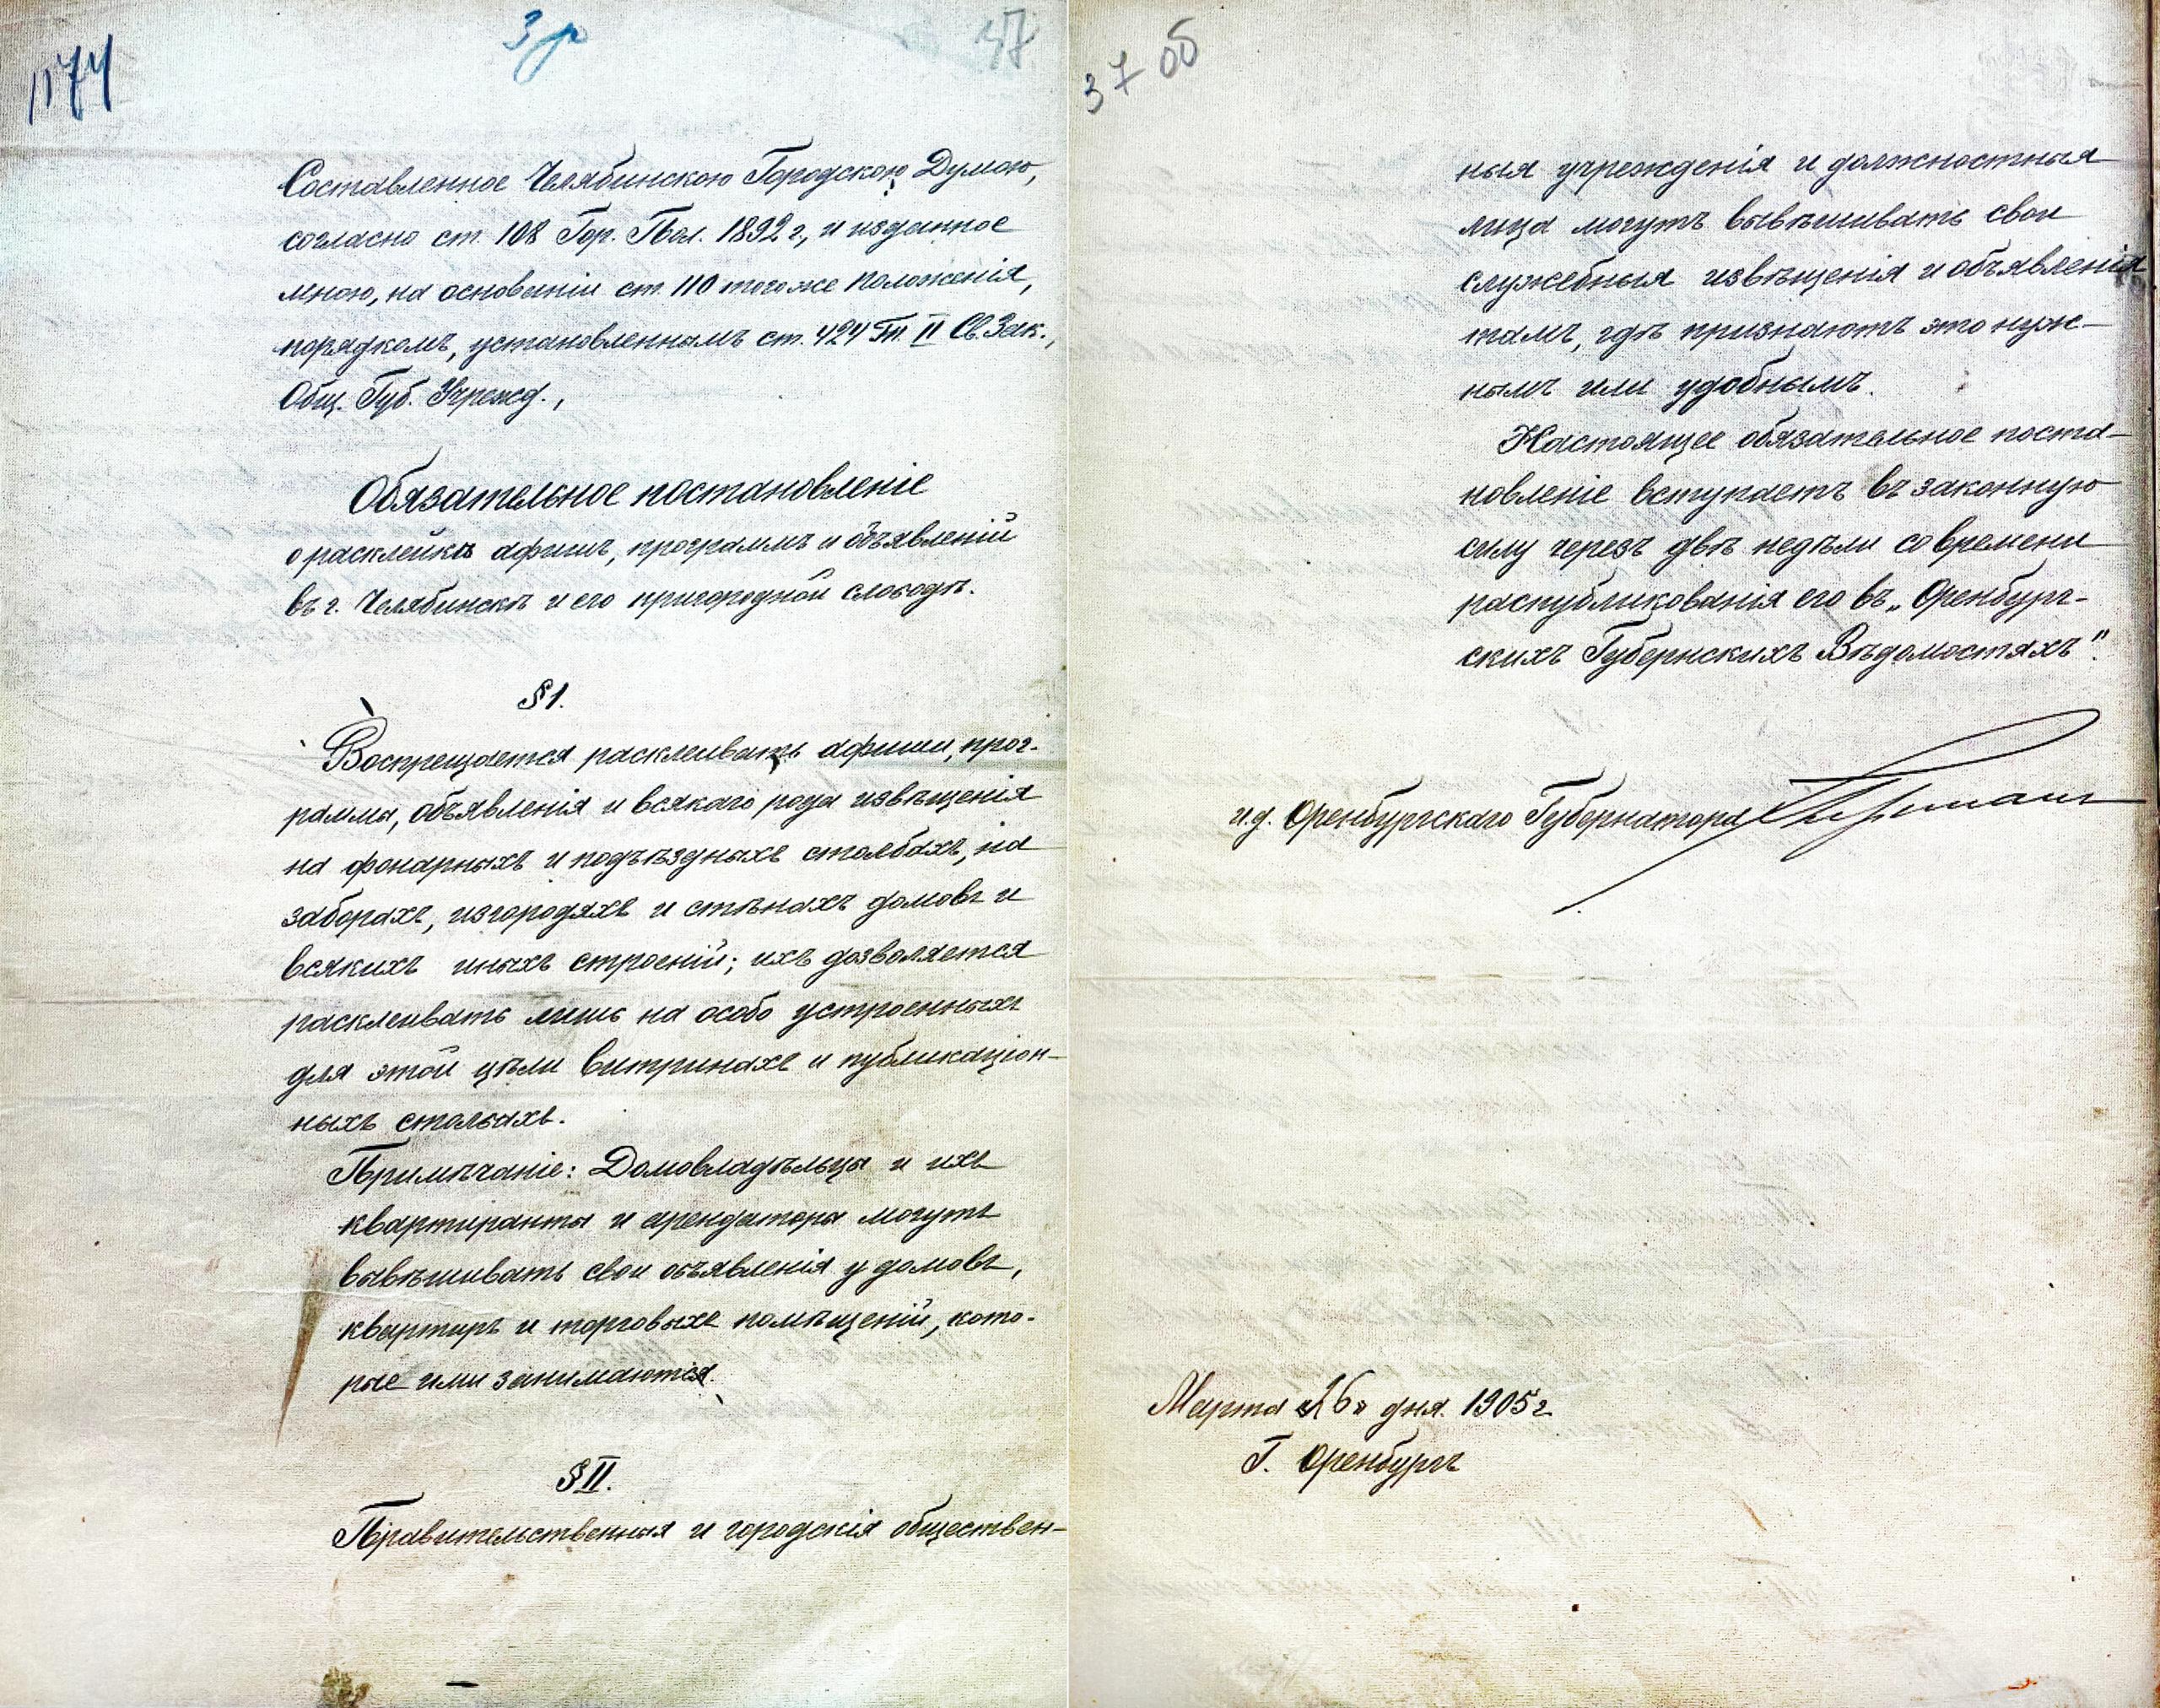 1174
3 р
37
Составленное Челябинскою Городскою Думою,
согласно ст. 108 Гор. Пол. 1892 г., и изданное
мною, на основаніи ст. 110 того же положенія,
порядкомъ, установленнымъ ст. 424 Т. II Св. Зак.,
Общ. Губ. Учрежд.,
Обязательное постановленіе
о расклейкѣ афишъ, программъ и объявленій
въ г. Челябинскѣ и его пригородной слободѣ.
§ 1.
Воспрещается расклеивать афиши, прог-
раммы, объявленія и всякаго рода извѣщенія
на фонарныхъ и подъѣздныхъ столбахъ, на
заборахъ, изгородяхъ и стѣнахъ домовъ и
всякихъ иныхъ строеній; ихъ дозволяется
расклеивать лишь на особо устроенныхъ
для этой цѣли витринахъ и публикаціон-
ныхъ столбахъ.
Примѣчаніе: Домовладѣльцы и ихъ
квартиранты и арендаторы могутъ
вывѣшивать свои объявленія у домовъ,
квартиръ и торговыхъ помѣщеній, кото-
рые ими занимаются.
§ II.
Правительственныя и городскія обществен-
37 об
ныя учрежденія и должностныя
лица могутъ вывѣшивать свои
служебныя извѣщенія и объявленія
тамъ, гдѣ признаютъ это нуж-
нымъ или удобнымъ.
Настоящее обязательное поста-
новленіе вступаетъ въ законную
силу черезъ двѣ недѣли со времени
распубликованія его въ „Оренбург-
скихъ Губернскихъ Вѣдомостяхъ".
и.д. Оренбургскаго Губернатора
Марта «26» дня 1905 г.
Г. Оренбургъ